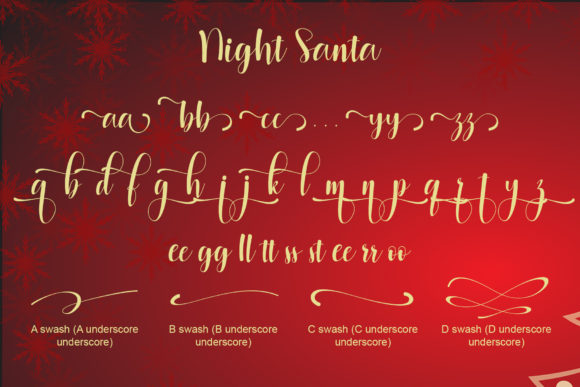 Night Santa
aa bb cc ... yy zz
q b d f g h j j k l m n p q r t y z
ee gg ll tt ss st ee rr oo
A swash (A underscore underscore)
B swash (B underscore underscore)
C swash (C underscore underscore)
D swash (D underscore underscore)